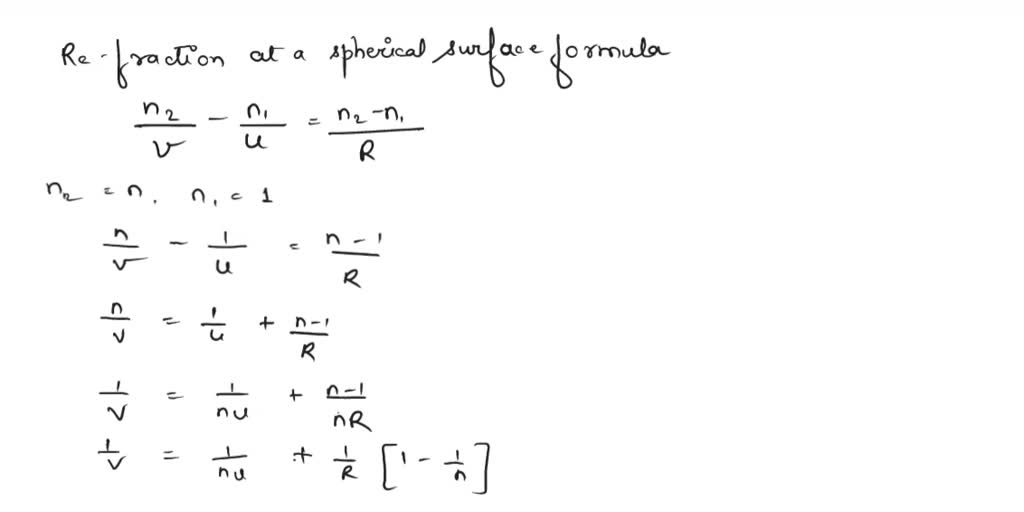 Re-fraction at a spherical surface formula
n₂/v - n₁/u = n₂-n₁/R
n₂ = n, n₁ = 1
n/v - 1/u = n-1/R
n/v = 1/u + n-1/R
1/v = 1/nu + n-1/nR
1/v = 1/nu + 1/R [1 - 1/n]